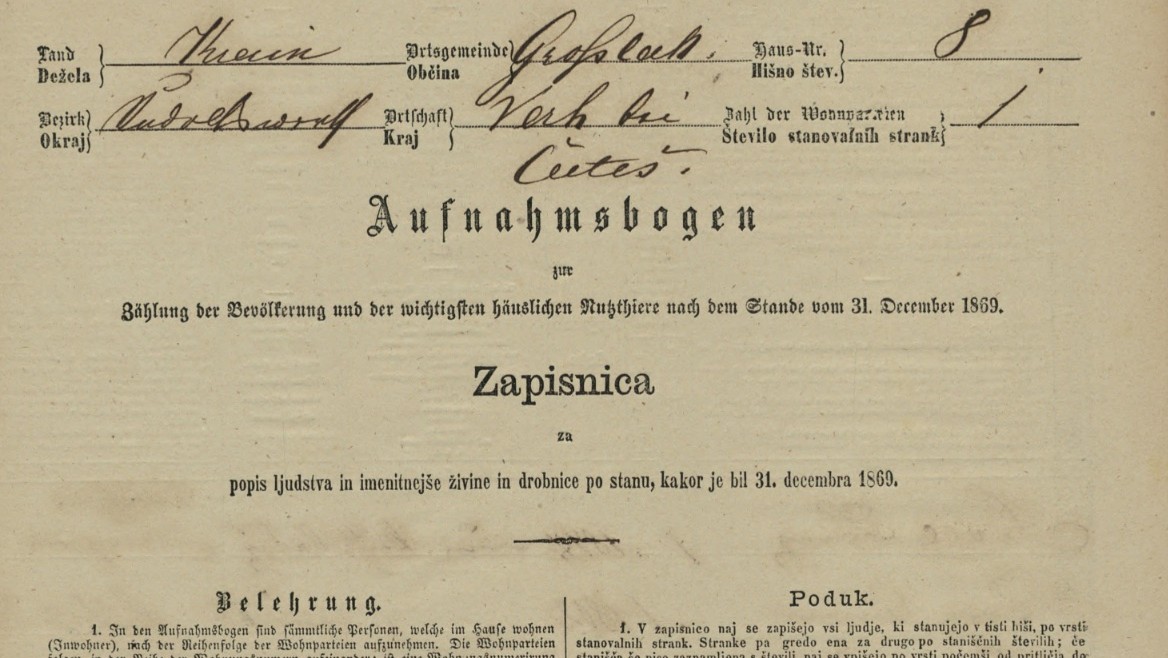 Land Krain Ortsgemeinde Großlack. Haus-Nr. 8
Dežela Občina Hišno štev.
Bezirk Rudolfswerth Ortschaft Verh bei Zahl der Wohnparteien 1
Okraj Kraj Število stanovalnih strank
Aufnahmsbogen
zur
Zählung der Bevölkerung und der wichtigsten häuslichen Nutzthiere nach dem Stande vom 31. December 1869.
Zapisnica
za
popis ljudstva in imenitnejše živine in drobnice po stanu, kakor je bil 31. decembra 1869.
Belehrung.
1. In den Aufnahmsbogen sind sämmtliche Personen, welche im Hause wohnen
(Inwohner), nach der Reihenfolge der Wohnparteien aufzunehmen. Die Wohnparteien
Poduk.
1. V zapisnico naj se zapišejo vsi ljudje, ki stanujejo v tisti hiši, po vrsti
stanovalnih strank. Stranke pa gredo ena za drugo po staniščnih številih; če